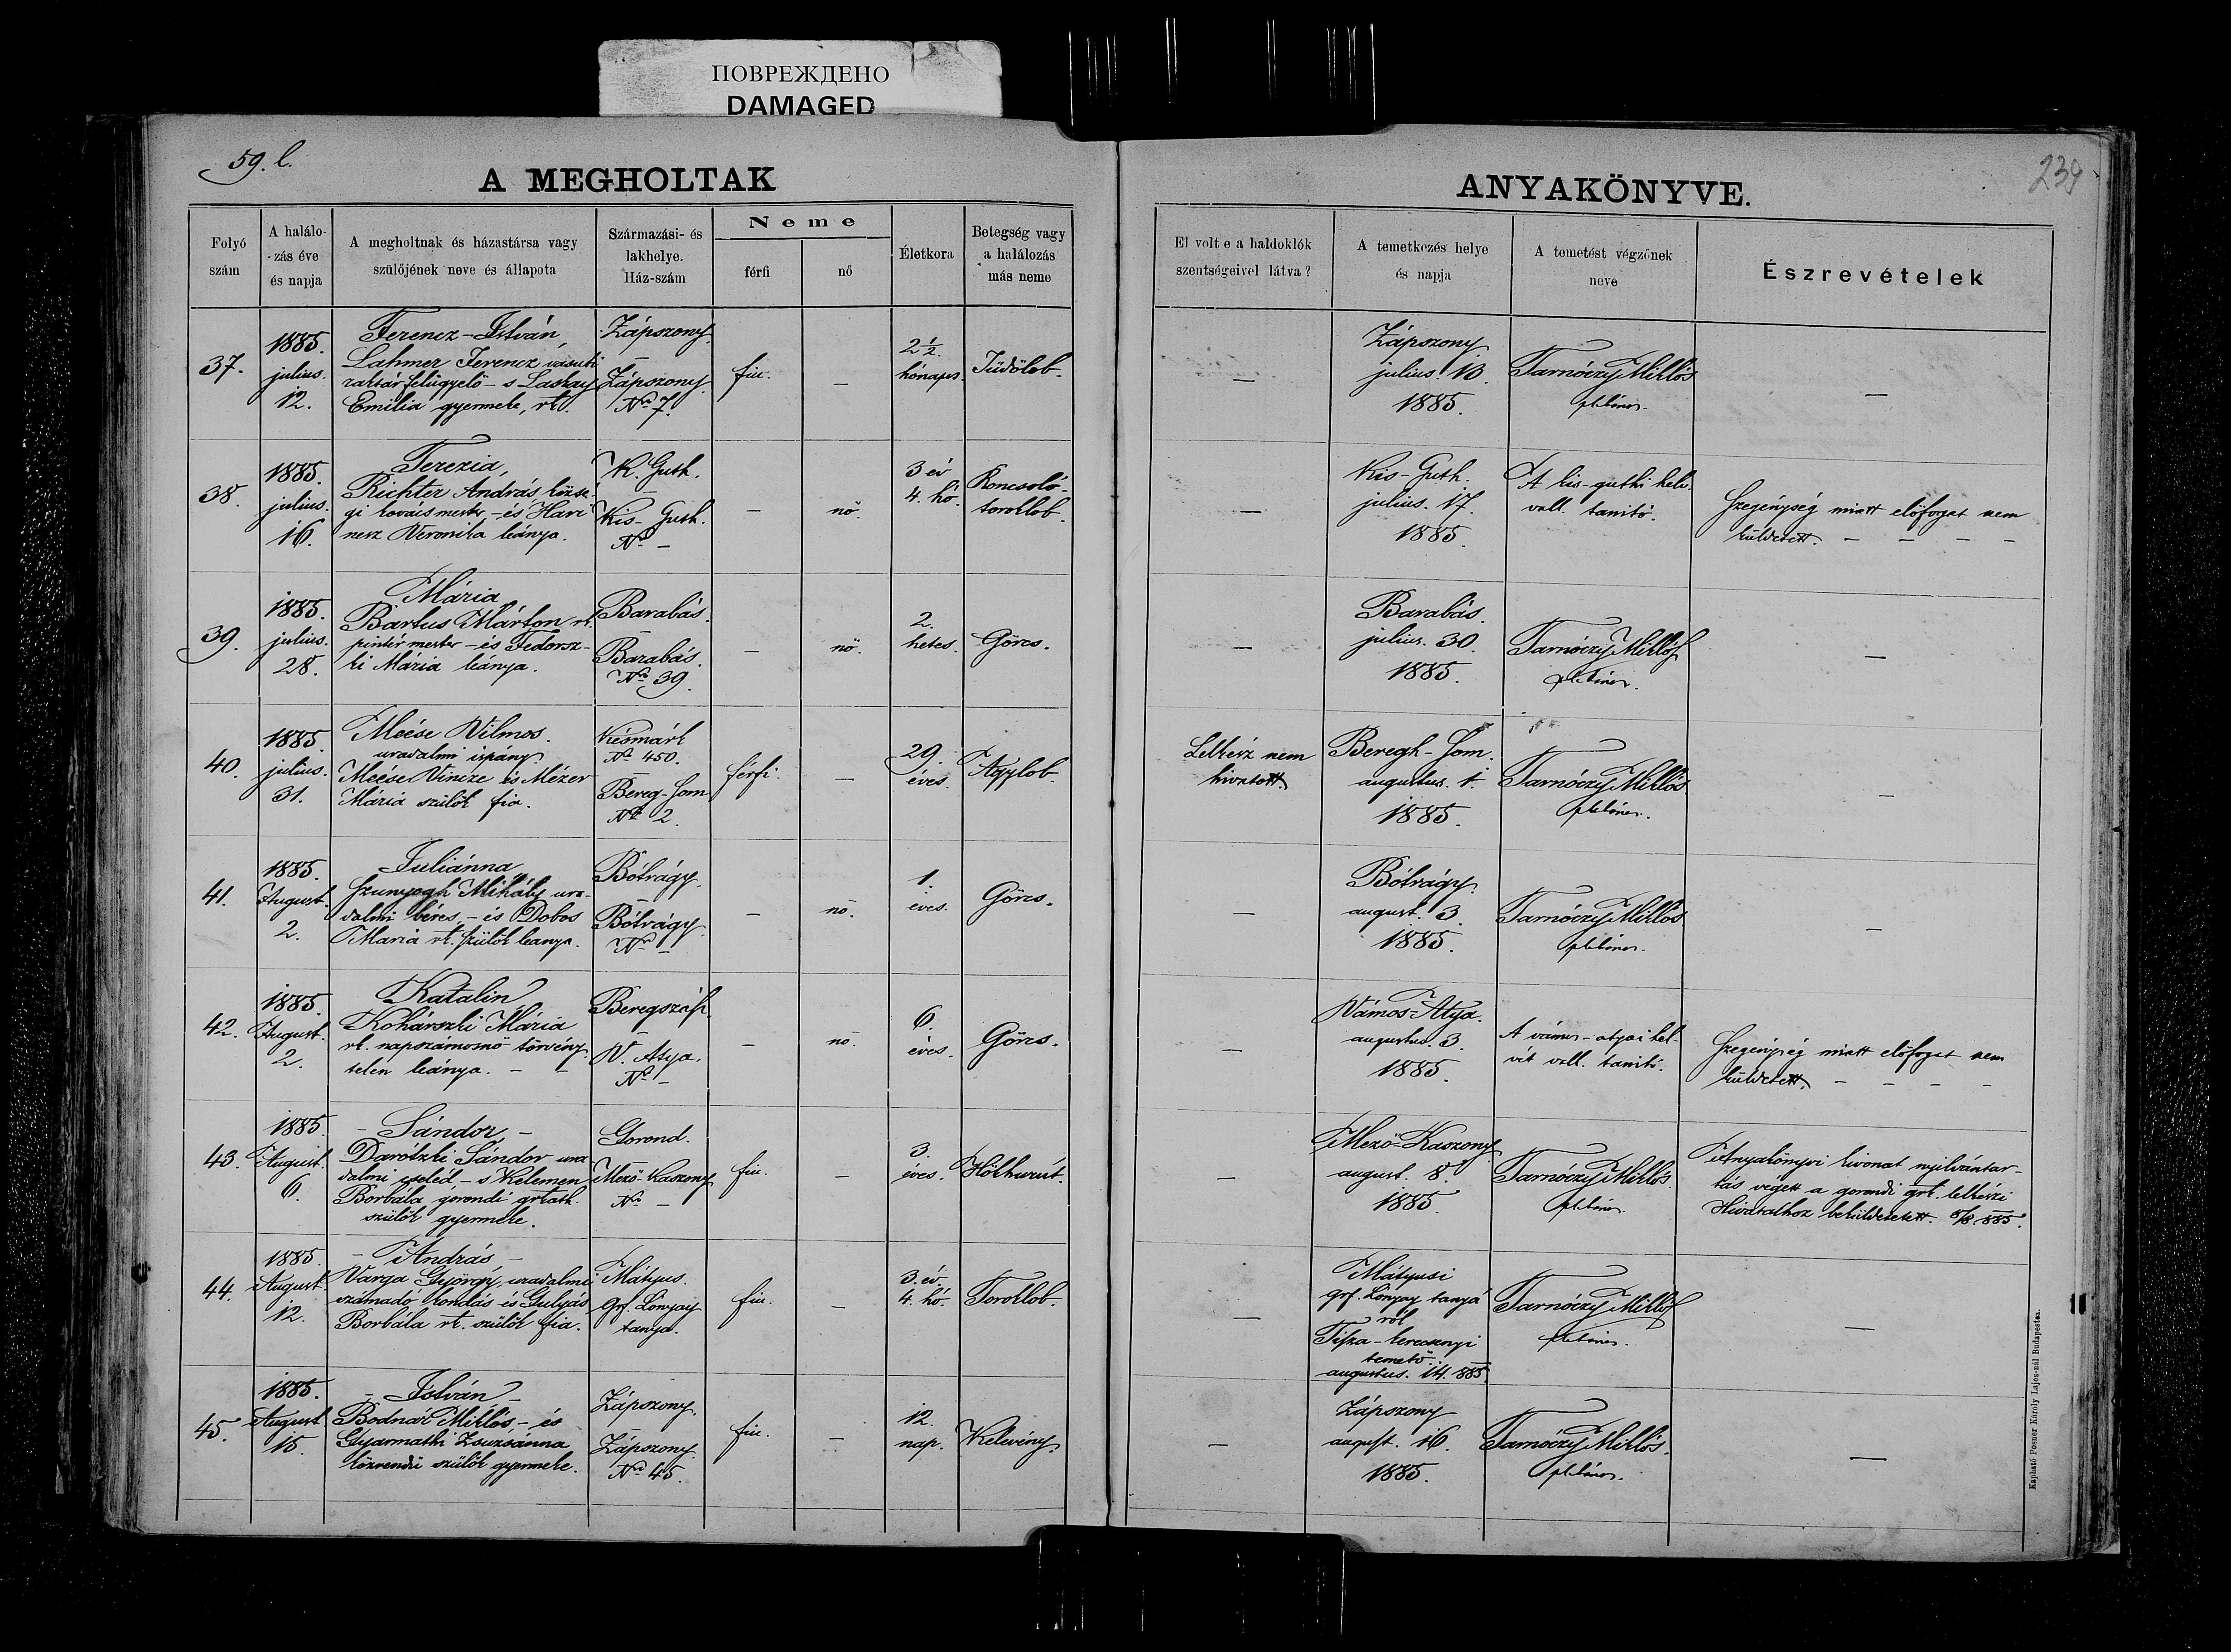 ПОВРЕЖДЕНО
DAMAGED
59. l.
A MEGHOLTAK
ANYAKÖNYVE.
239
Folyó szám
A halálo-
zás éve
és napja
A megholtnak és házastársa vagy
szülőjének neve és állapota
Származási- és
lakhelye.
Ház-szám
Neme
férfi
nő
Életkora
Betegség vagy
a halálozás
más neme
El volt e a haldoklók
szentségeivel látva?
A temetkezés helye
és napja
A temetést végzőnek
neve
Észrevételek
37.
1885.
julius.
12.
Ferencz-István,
Lahmer Ferencz vasuti
raktárfelügyelő - s Laskay
Emilia gyermeke, rk.
Zápszony.
Zápszony.
No 7.
fiu.
—
2 1/2.
hónapos.
Tüdőlob.
—
Zápszony
julius. 13.
1885.
Tarnóczy Miklós
plebános.
—
38.
1885.
julius.
16.
Terezia,
Richter András közsé-
gi kovácsmester - és Havi
nesz Veronika leánya.
K. Guth.
Kis-Guth.
No -
—
nő.
3 év
4. hó.
Roncsoló-
toroklob.
—
Kis-Guth.
julius. 17.
1885.
A kis-guthi helv.
vall. tanitó.
Szegénység miatt előfogat nem
küldetett. - - - -
39.
1885.
julius.
28.
Mária
Bartus Márton rk.
pintér mester - és Fedorsz-
ki Mária leánya.
Barabás.
Barabás.
No 39.
—
nő.
2.
hetes.
Görcs.
—
Barabás.
julius. 30.
1885.
Tarnóczy Miklós
plebános.
—
40.
1885.
julius.
31.
Meése Vilmos.
uradalmi ispány
Meése Vincze és Mézer
Mária szülők fia.
Késmárk
No 450.
Bereg-Som
No 2.
férfi.
—
29.
éves.
Agylob.
Lelkész nem
hivatott.
Beregh-Som.
augustus. 1.
1885.
Tarnóczy Miklós.
plebános.
—
41.
1885.
August.
2.
Juliánna
Szunyogh Mihály ura-
dalmi béres, - és Dobos
Maria rk. szülők leanya.
Bótrágy.
Bótrágy.
No -
—
nő.
1.
éves.
Görcs.
—
Bótrágy.
august. 3.
1885.
Tarnóczy Miklós.
plebános.
—
42.
1885.
August.
2.
Katalin
Kohárszki Mária
rk. napszámosnő törvény-
telen leánya. - -
Beregszász.
V. Atya.
No -
—
nő.
6.
éves.
Görcs.
—
Vámos-Atya.
augustus. 3.
1885.
A vámos-atyai hel-
vét vall. tanitó.
Szegénység miatt előfogat nem
küldetett. - - - -
43.
1885.
August.
6.
- Sándor, -
Darótzki Sándor ura
dalmi cseléd, - s Kelemen
Borbála gorondi grkath.
szülők gyermeke.
Gorond.
Mező-Kaszony.
No -
fiu.
—
3.
éves.
Hökhurút.
—
Mező-Kaszony
august. 8.
1885.
Tarnóczy Miklós.
plebános.
Anyakönyvi kivonat nyilvántar-
tás végett a gorondi grk. lelkészi
Hivatalhoz beküldetett. 8/8 885.
44.
1885.
August.
12.
- András -
Varga György, uradalmi
számadó kondás és Gulyás
Borbála rk. szülők fia.
Mátyus.
Grf. Lónyay
tanya.
fiu.
—
3. év.
4. hó.
Toroklob.
—
Mátyusi
grf. Lónyay tanyá
ról
Tisza-kerecsenyi
temető.
augustus. 14. 885.
Tarnóczy Miklós
plebános.
—
45.
1885.
August
15.
- István -
Bodnár Miklós, - és
Gyarmathi Zsuzsánna
közrendü szülők gyermeke.
Zápszony.
Zápszony.
No 45.
fiu.
—
12.
nap.
Kelevény.
—
Zápszony
august. 16.
1885.
Tarnóczy Miklós.
plebános.
—
Kapható Posner Károly Lajos-nál Budapesten.